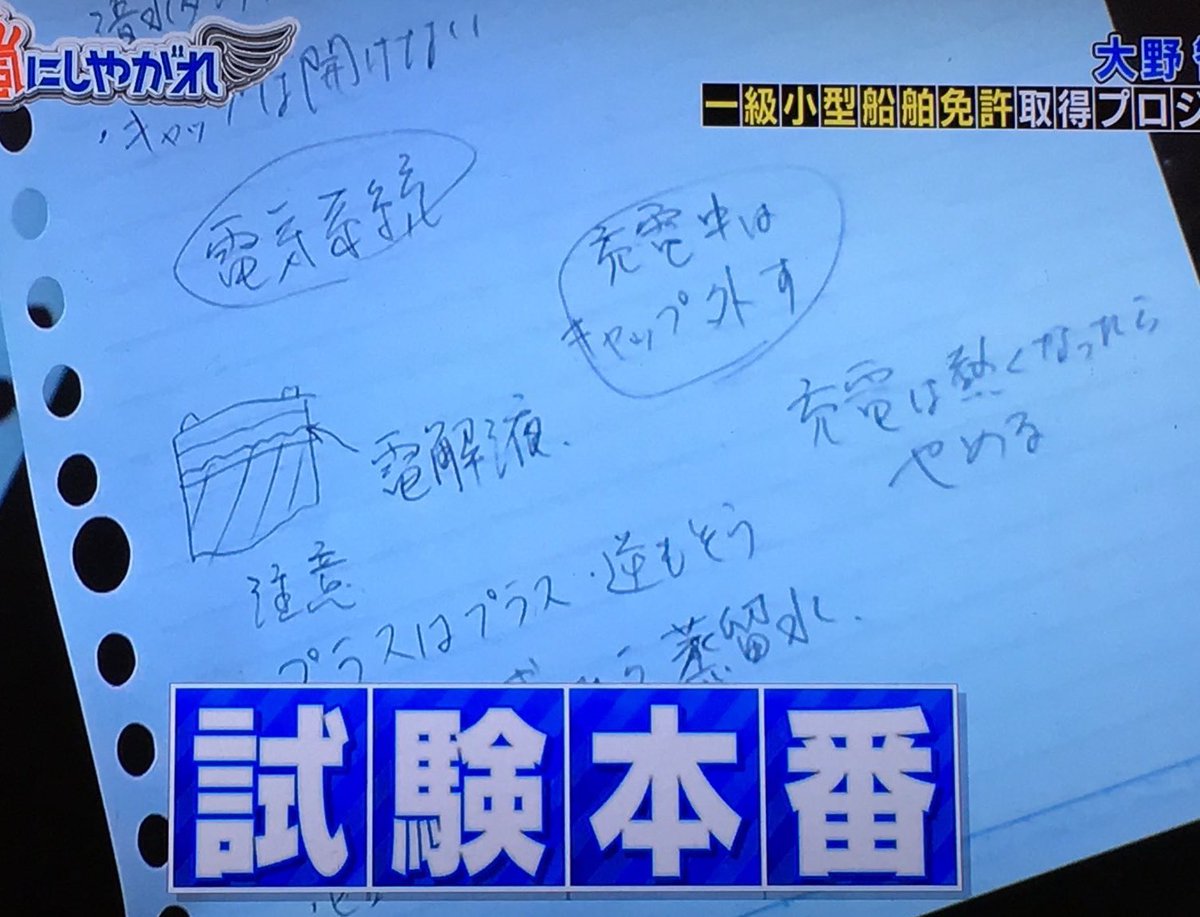 嵐にしやがれ
大野
一級小型船舶免許取得プロジ
は開けない
電気系統
充電中は
キャップ外す
電解液.
充電は熱くなったら
やめる
注意
プラスはプラス・逆もそう
蒸留水.
試験本番